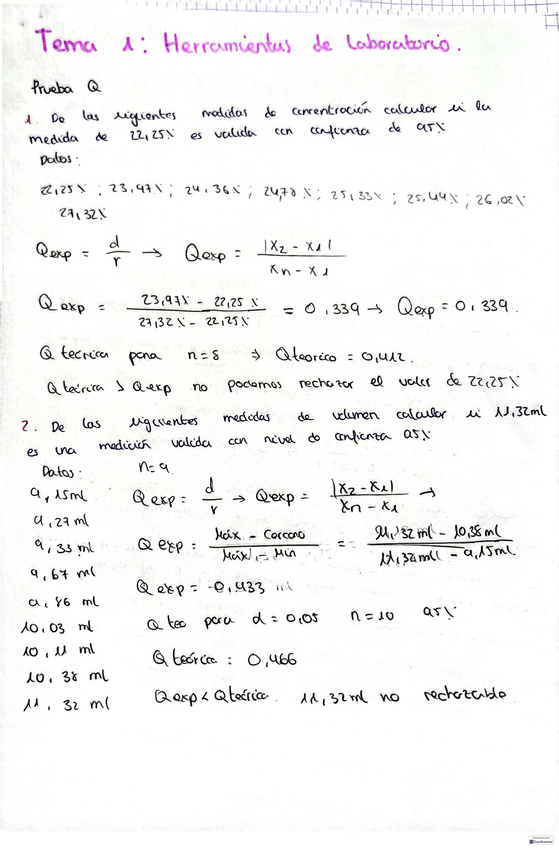 Tema 1: Herramientas de Laboratorio.
Prueba Q
1. De las siguientes medidas de concentración calcular si la
medida de 22,25% es valida con confianza de 95%
Datos:
22,25% ; 23,97% ; 24,36% ; 24,78% ; 25,33% ; 25,44% ; 26,02%
27,32%
Qexp = d/r → Qexp = |x2 - x1| / xn - x1
Qexp = 23,97% - 22,25% / 27,32% - 22,25% = 0,339 → Qexp = 0,339.
Q teórica para n=8 ⇒ Qteorico = 0,412.
Q teórica > Qexp no podemos rechazar el valor de 22,25%
2. De las siguientes medidas de volumen calcular si 11,32ml
es una medición valida con nivel de confianza 95%
Datos: n=9
9,15ml
9,27 ml
9,33 ml
9,67 ml
9,86 ml
10,03 ml
10,11 ml
10,38 ml
11,32 ml
Qexp = d/r → Qexp = |x2 - x1| / xn - x1 →
Q exp = Máx - Cercano / Máx - Min = 11,32ml - 10,38ml / 11,32ml - 9,15ml
Q exp = 0,433
Q teo para d = 0,05 n=10 95%
Q teórica : 0,466
Qexp < Qteórica. 11,32ml no rechazable
CamScanner